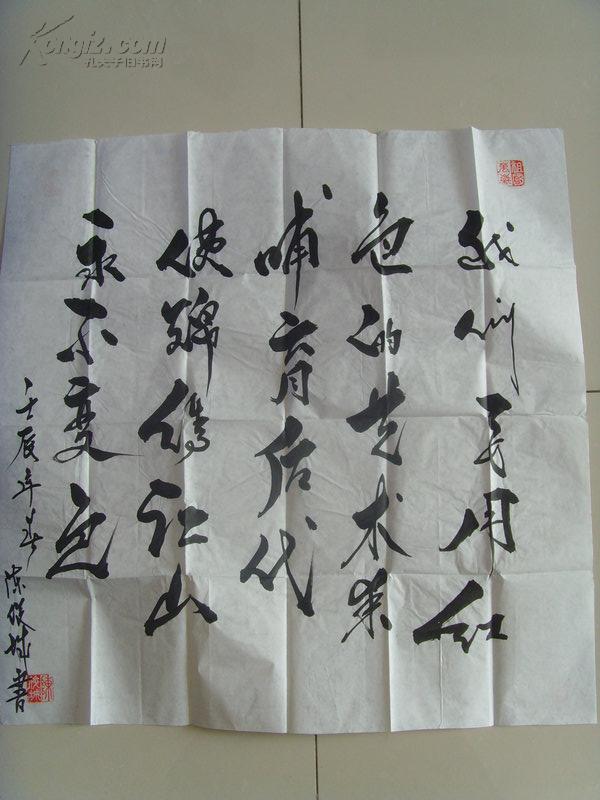 我们要用红
色的艺术来
哺育后代
使锦绣江山
永不变色
壬辰年春
陈俊 书
Kongfz.com
孔夫子旧书网